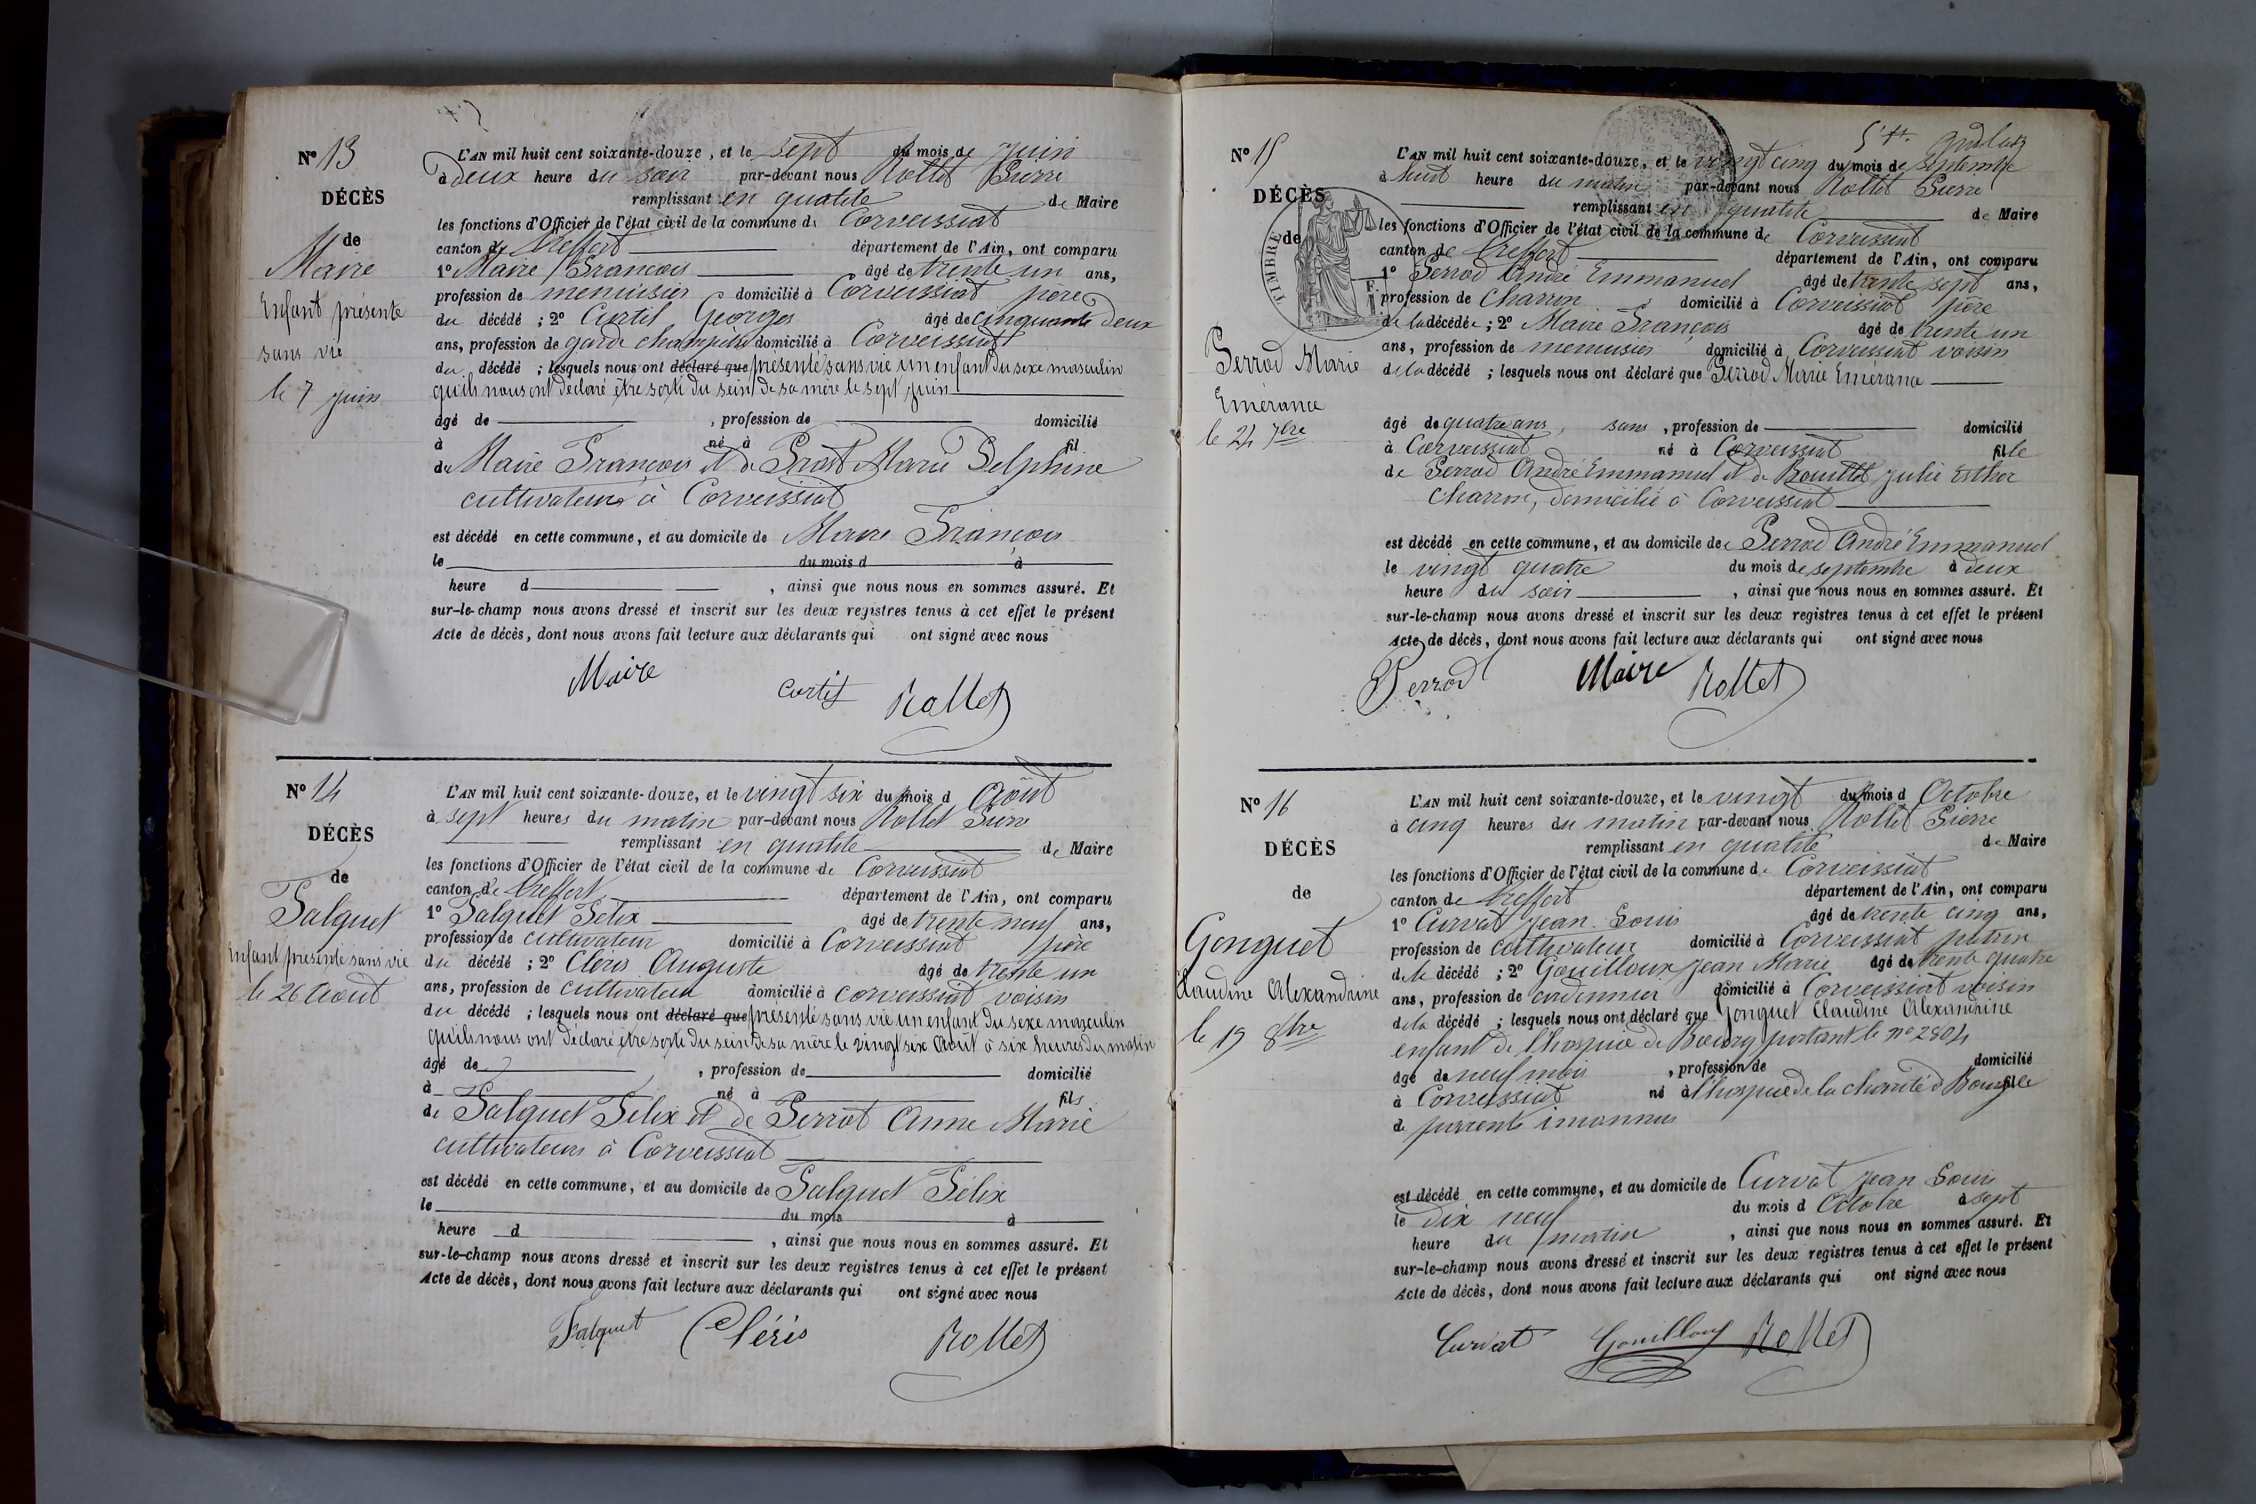 N° 13
DÉCÈS
de
Maire
Enfant présenté
sans vie
le 7 juin
L'AN mil huit cent soixante-douze, et le sept du mois de juin
à deux heure du soir par-devant nous Rollet Pierre
remplissant en qualité de Maire
les fonctions d'Officier de l'état civil de la commune de Corveissiat
canton de Treffort département de l'Ain, ont comparu
1° Maire François âgé de trente un ans,
profession de menuisier domicilié à Corveissiat père
du décédé ; 2° Curtil Georges âgé de cinquante deux
ans, profession de garde champêtre domicilié à Corveissiat
du décédé ; lesquels nous ont déclaré que présenté sans vie un enfant du sexe masculin
qu'ils nous ont déclaré être sorti du sein de sa mère le sept juin
âgé de , profession de domicilié
à né à fil
de Maire François et de Prost Marie Delphine
cultivateurs à Corveissiat
est décédé en cette commune, et au domicile de Maire François
le du mois d à
heure d , ainsi que nous nous en sommes assuré. Et
sur-le-champ nous avons dressé et inscrit sur les deux registres tenus à cet effet le présent
Acte de décès, dont nous avons fait lecture aux déclarants qui ont signé avec nous
Maire Curtil Rollet
N° 14
DÉCÈS
de
Falquet
Enfant présenté sans vie
le 26 Août
L'AN mil huit cent soixante-douze, et le vingt six du mois d Août
à sept heures du matin par-devant nous Rollet Pierre
remplissant en qualité de Maire
les fonctions d'Officier de l'état civil de la commune de Corveissiat
canton de Treffort département de l'Ain, ont comparu
1° Falquet Félix âgé de trente neuf ans,
profession de cultivateur domicilié à Corveissiat père
du décédé ; 2° Cléris Auguste âgé de trente un
ans, profession de cultivateur domicilié à Corveissiat voisin
du décédé ; lesquels nous ont déclaré que présenté sans vie un enfant du sexe masculin
qu'ils nous ont déclaré être sorti du sein de sa mère le vingt six Août à six heures du matin
âgé de , profession de domicilié
à né à fils
de Falquet Félix et de Perrot Anne Marie
cultivateurs à Corveissiat
est décédé en cette commune, et au domicile de Falquet Félix
le du mois à
heure d , ainsi que nous nous en sommes assuré. Et
sur-le-champ nous avons dressé et inscrit sur les deux registres tenus à cet effet le présent
Acte de décès, dont nous avons fait lecture aux déclarants qui ont signé avec nous
Falquet Cléris Rollet
N° 15
DÉCÈS
de
TIMBRE
Perrod Marie
Emérance
le 24 7bre
L'AN mil huit cent soixante-douze, et le vingt cinq du mois de septembre
à huit heure du matin par-devant nous Rollet Pierre
remplissant en qualité de Maire
les fonctions d'Officier de l'état civil de la commune de Corveissiat
canton de Treffort département de l'Ain, ont comparu
1° Perrod André Emmanuel âgé de trente sept ans,
profession de charron domicilié à Corveissiat père
de la décédée ; 2° Maire François âgé de trente un
ans, profession de menuisier domicilié à Corveissiat voisin
de la décédé ; lesquels nous ont déclaré que Perrod Marie Emérance
âgé de quatre ans, sans , profession de domicilié
à Corveissiat né à Corveissiat fille
de Perrod André Emmanuel et de Bouillet Julie Esther
charron, domicilié à Corveissiat
est décédé en cette commune, et au domicile de Perrod André Emmanuel
le vingt quatre du mois de septembre à deux
heure du soir , ainsi que nous nous en sommes assuré. Et
sur-le-champ nous avons dressé et inscrit sur les deux registres tenus à cet effet le présent
Acte de décès, dont nous avons fait lecture aux déclarants qui ont signé avec nous
Perrod Maire Rollet
N° 16
DÉCÈS
de
Gonguet
Claudine Alexandrine
le 19 8bre
L'AN mil huit cent soixante-douze, et le vingt du mois d Octobre
à cinq heures du matin par-devant nous Rollet Pierre
remplissant en qualité de Maire
les fonctions d'Officier de l'état civil de la commune de Corveissiat
canton de Treffort département de l'Ain, ont comparu
1° Curvat Jean Louis âgé de trente cinq ans,
profession de cultivateur domicilié à Corveissiat
de la décédé ; 2° Gouilloux Jean Marie âgé de trente quatre
ans, profession de cordonnier domicilié à Corveissiat voisin
de la décédé ; lesquels nous ont déclaré que Gonguet Claudine Alexandrine
enfant de l'hospice de Bourg portant le n° 2804
âgé de neuf mois , profession de domicilié
à Corveissiat né à l'hospice de la charité d Bourg fille
de parents inconnus
est décédé en cette commune, et au domicile de Curvat Jean Louis
le dix neuf du mois d Octobre à sept
heure du matin , ainsi que nous nous en sommes assuré. Et
sur-le-champ nous avons dressé et inscrit sur les deux registres tenus à cet effet le présent
Acte de décès, dont nous avons fait lecture aux déclarants qui ont signé avec nous
Curvat Gouilloux Rollet